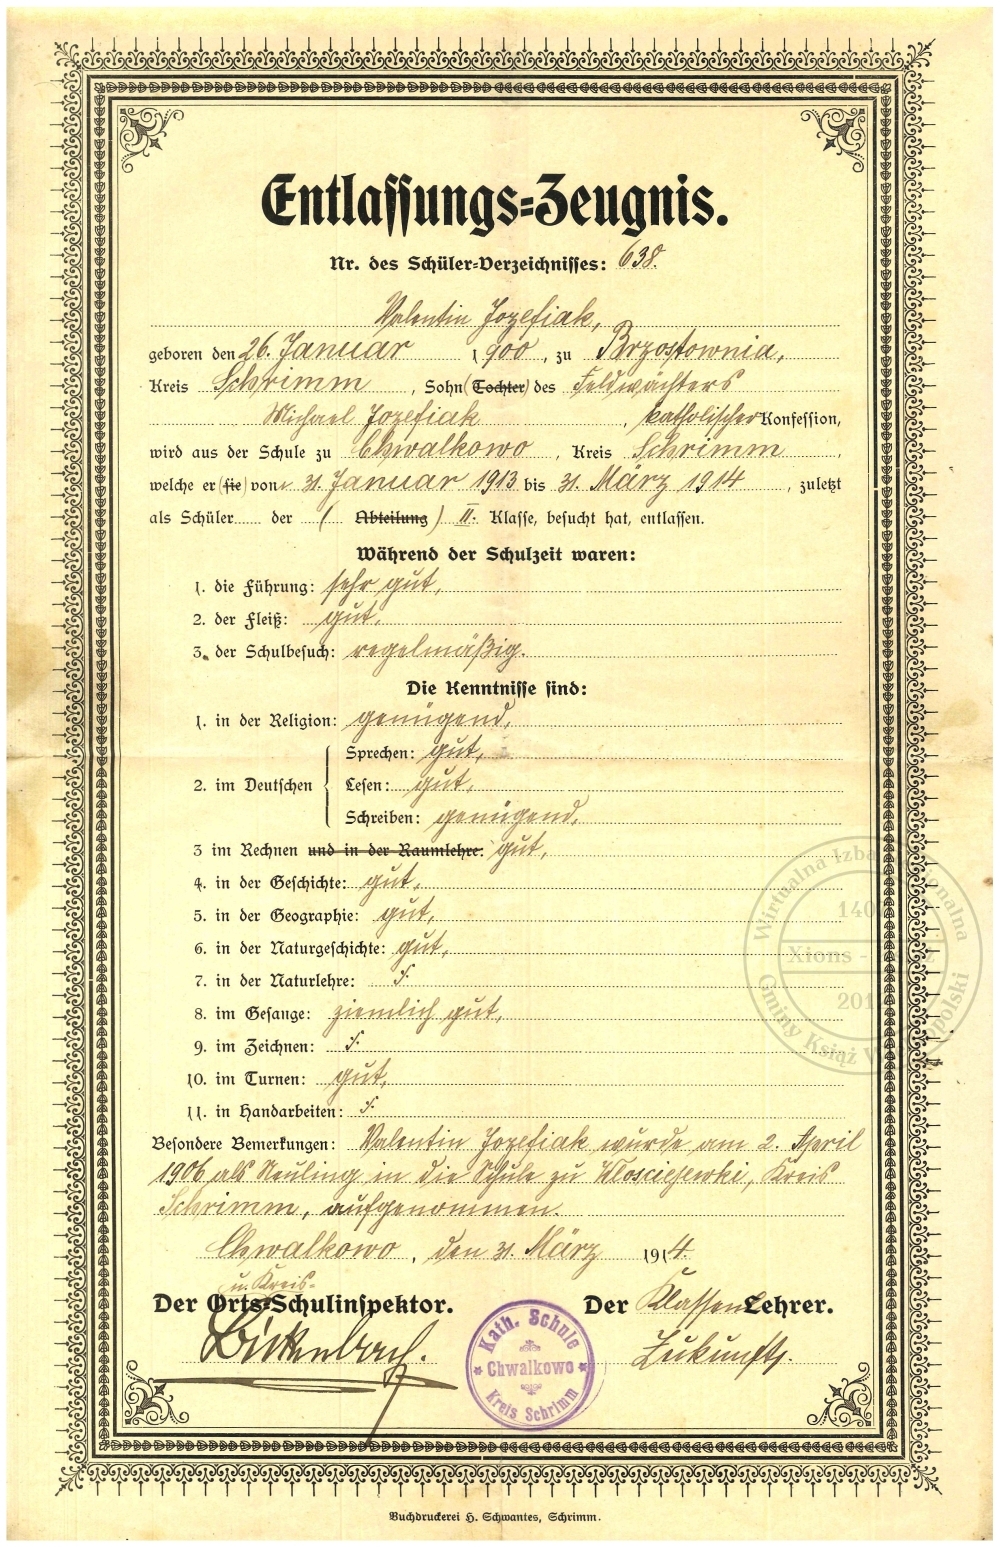 Entlassungs-Zeugnis.
Nr. des Schüler-Verzeichnisses: 638.
Valentin Jozefiak,
geboren den 26. Januar 1900, zu Brzostownia,
Kreis Schrimm, Sohn (Tochter) des Feldwächters
Michael Jozefiak, katholischer Konfession,
wird aus der Schule zu Chwalkowo, Kreis Schrimm,
welche er (sie) vom 31. Januar 1913 bis 31. März 1914, zuletzt
als Schüler der ( Abteilung ) II. Klasse, besucht hat, entlassen.
Während der Schulzeit waren:
1. die Führung: sehr gut,
2. der Fleiß: gut,
3. der Schulbesuch: regelmäßig.
Die Kenntnisse sind:
1. in der Religion: genügend,
2. im Deutschen
Sprechen: gut,
Lesen: gut,
Schreiben: genügend,
3 im Rechnen und in der Raumlehre: gut,
4. in der Geschichte: gut,
5. in der Geographie: gut,
6. in der Naturgeschichte: gut,
7. in der Naturlehre:
8. im Gesange: ziemlich gut,
9. im Zeichnen:
10. im Turnen: gut,
11. in Handarbeiten:
Besondere Bemerkungen: Valentin Jozefiak wurde am 2. April
1906 als Neuling in die Schule zu Wlosciejewki, Kreis
Schrimm, aufgenommen.
Chwalkowo, den 31. März 1914.
u. Kreis-
Der Orts-Schulinspektor. Der Klassen Lehrer.
Zukunft.
Kath. Schule
Chwalkowo
Kreis Schrimm
Wirtualna Izba Regionalna
Xions -
Gminy Książ Wielkopolski
Buchdruckerei H. Schwantes, Schrimm.